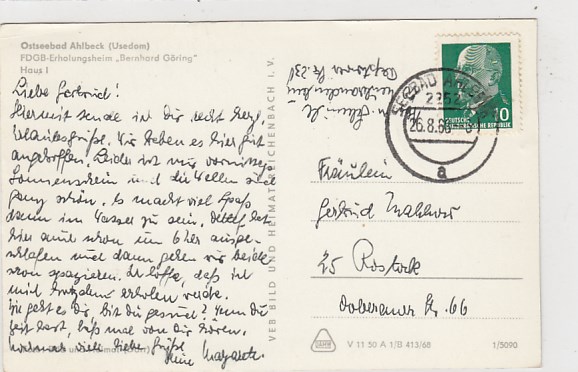 Ostseebad Ahlbeck (Usedom)
FDGB-Erholungsheim „Bernhard Göring"
Haus I
Liebe Gertrud!
Hiermit sende ich dir recht herzl.
Urlaubsgrüße. Wir haben es hier gut
angetroffen. Leider ist nur vormittags
Sonnenschein und die Wellen sind
ganz schön. Es macht viel Spaß
dann im Wasser zu sein. Detlef ist
hier auch schon um 6 Uhr ausge-
schlafen und dann gehen wir beide
schon spazieren. Ich hoffe, daß ich
mich trotzdem erholen werde.
Wie geht es dir, bist du gesund? Wenn du
Zeit hast, laß mal von dir hören.
Nochmals viele liebe Grüße
Deine Margarete.
VEB BILD UND HEIMAT REICHENBACH I. V.
SEEBAD AHLBECK
26.8.68
a
10
DEUTSCHE
DEMOKRATISCHE REPUBLIK
Fräulein
Gertrud
25 Rostock
Doberaner Str. 66
V 11 50 A 1/B 413/68
1/5090